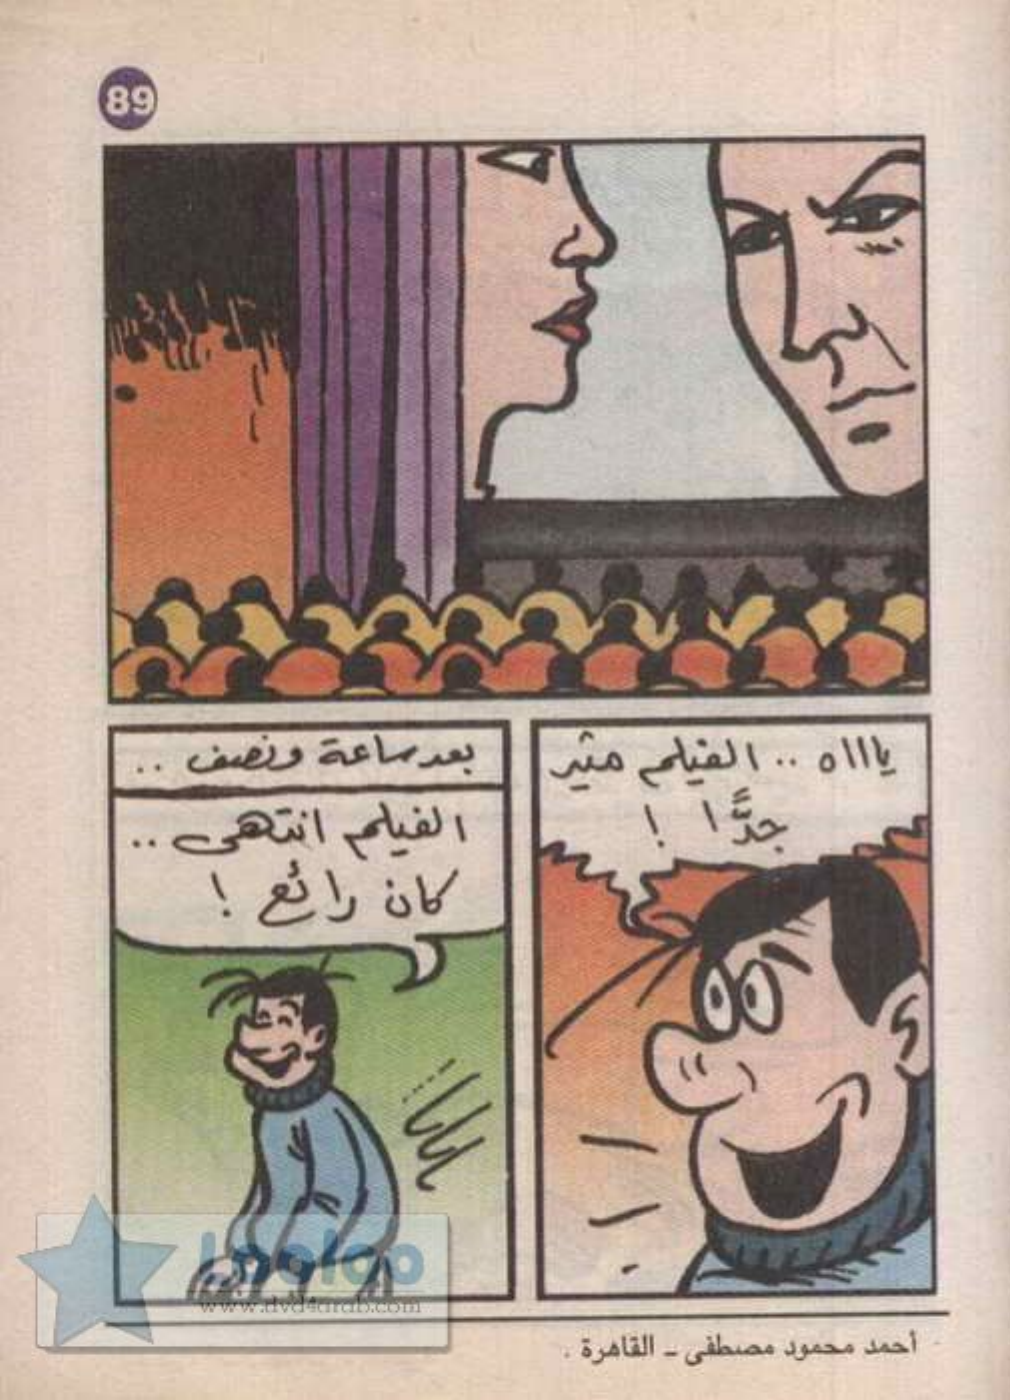 89
ياااه .. الفيلم مثير
جدًّا !
بعد ساعة ونصف ..
الفيلم انتهى ..
كان رائع !
looloo
www.dvd4arab.com
أحمد محمود مصطفى - القاهرة .